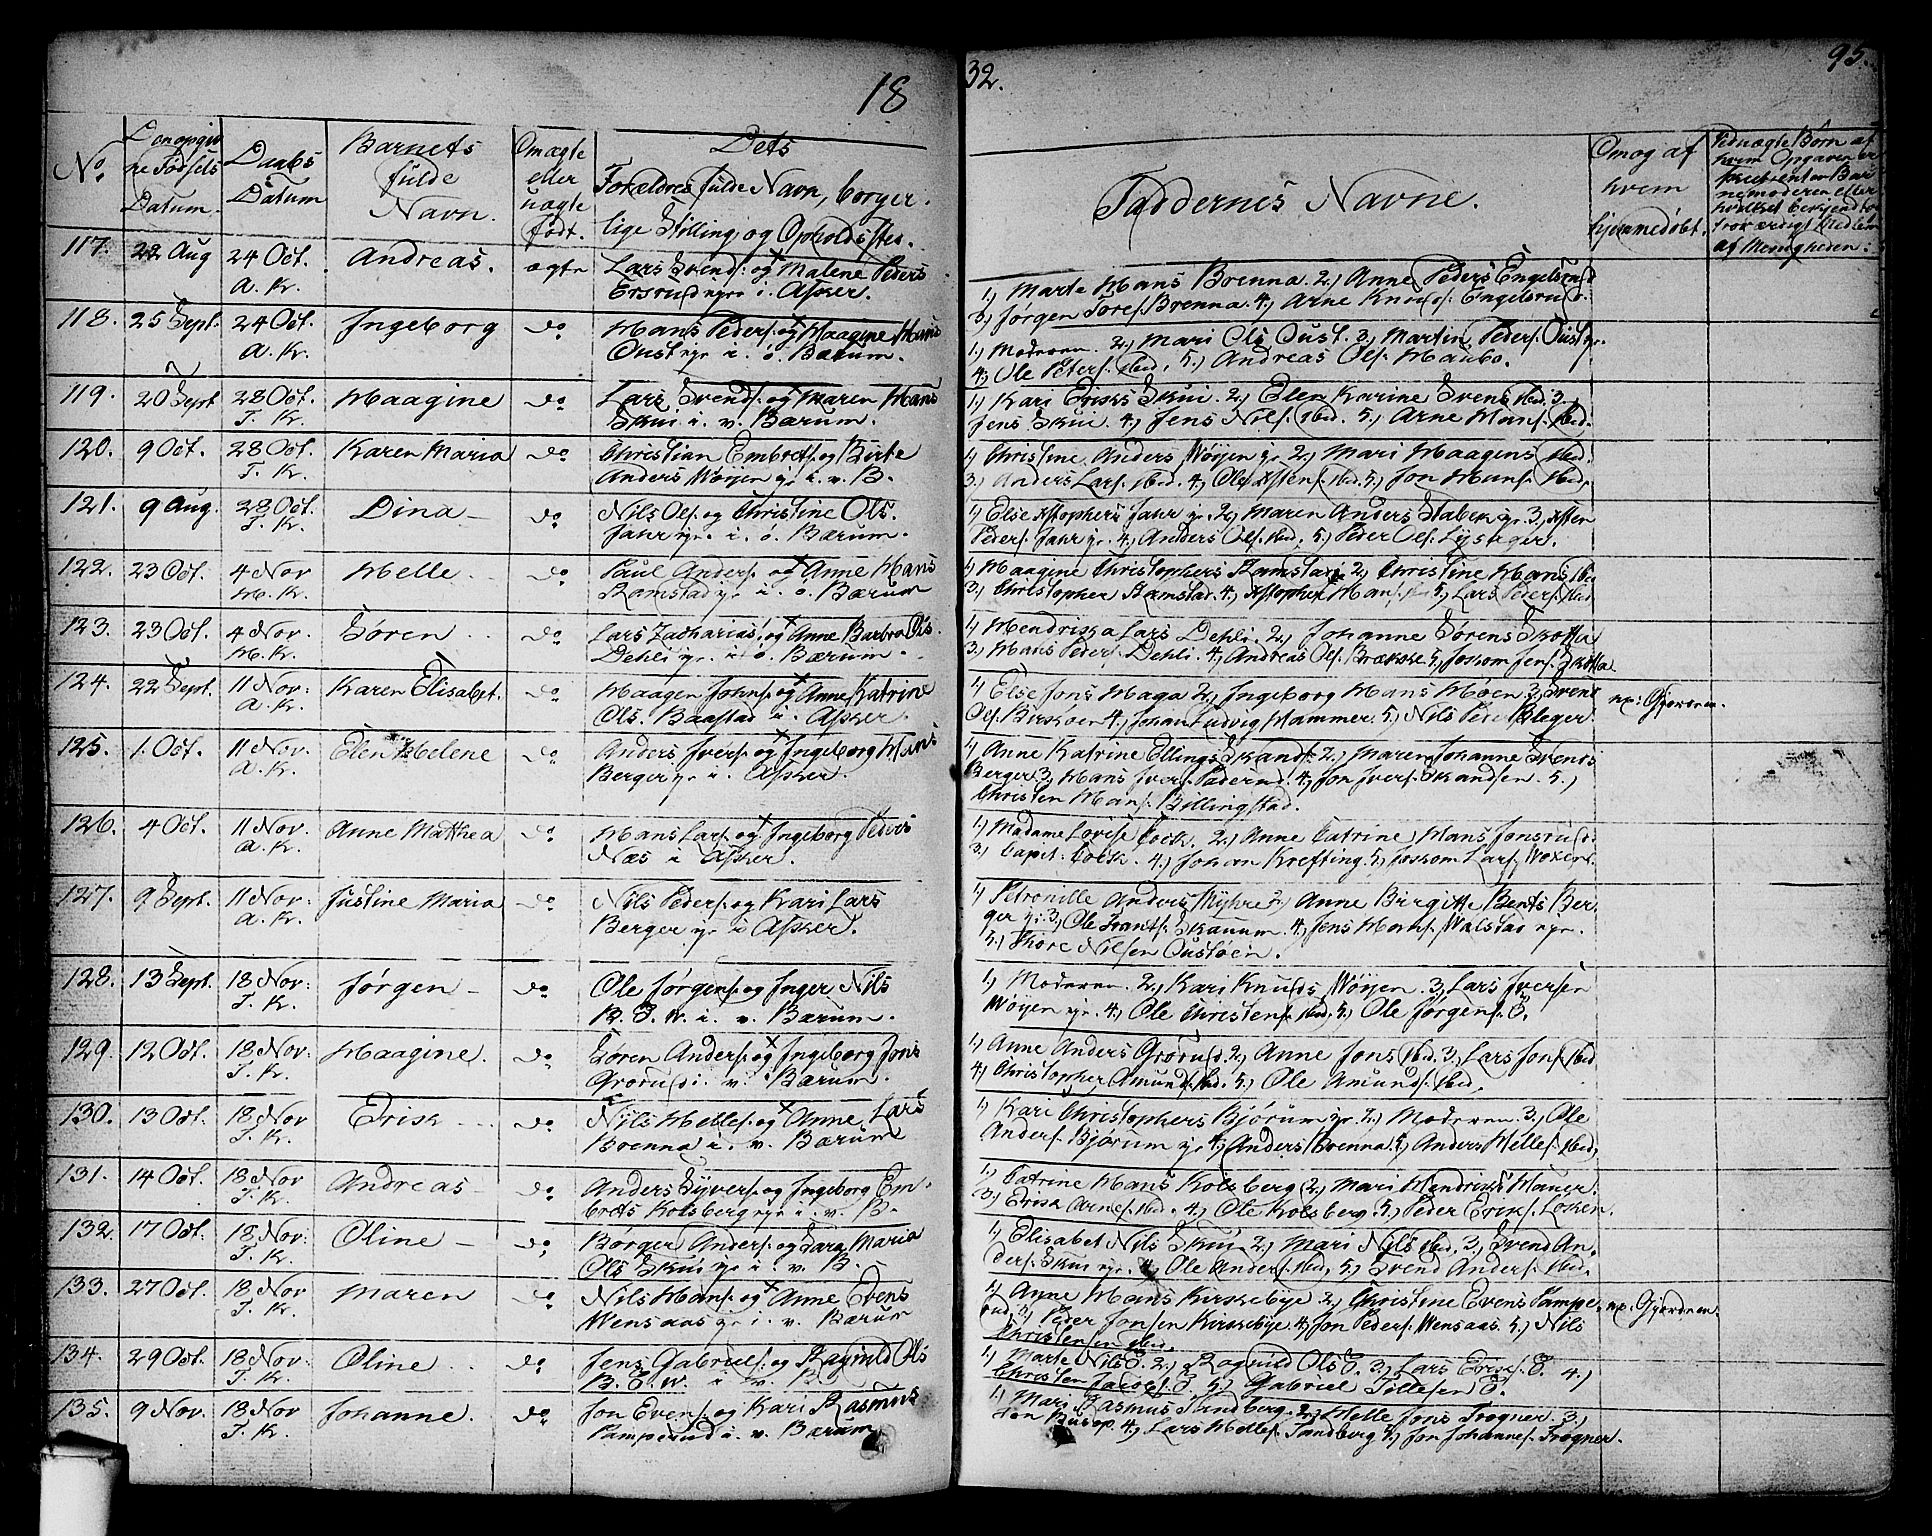 18 32. 95.
No.
Den opgiv
ne Fødsels
Datum.
Daabs
Datum
Barnets
fulde
Navn.
Om ægte
eller
uægte
født.
Dets
Forældres fulde Navn, borger.
lige Stilling, og Opholdssted.
Faddernes Navne.
Om og af
hvem
hjemmedøbt.
117. 22 Aug 24 Oct. Andreas. ægte Lars Svends. og Malene Peders
A. Kr. i. Asker.
1.) Marte Hans Brenna 2.) Anne Peders Engelsrud
3.) Jørgen Tores. Brenna. 4.) Arne Knuds. Engelsrud.
118. 25 Sept. 24 Oct. Ingeborg do Hans Peders. og Haagine Hans
A. Kr. Oust ye i. ø. Bærum.
1.) Moderen. 2.) Mari Ols Oust. 3.) Martin Peders. Oust ye.
4.) Ole Peters. Ibid, 5.) Andreas Ols. Haubo.
119. 20 Sept 28 Oct. Haagine do Lars Svends. og Maren Hans
T. Kr. Skui i. v. Bærum.
1.) Kari Eriks Skui 2.) Elen Karine Svens Ibid. 3.)
Jens Skui 4.) Jens Nils. Ibid. 5.) Arne Hans. Ibid.
120. 9 Oct. 28 Oct. Karen Maria do Christian Embrets. og Birte
T. Kr. Anders Wøyen ye i. v. B.
1.) Christine Anders Wøyen ye 2.) Mari Haagens Ibid.
3.) Anders Lars. Ibid. 4.) Ole Xstens. Ibid. 5.) Jon Hans. Ibid.
121. 9 Aug. 28 Oct. Dina do Nils Ols. og Christine Ols.
T. Kr. Jahr ye. i. ø. Bærum.
1.) Else Xstophers Jahr ye. 2.) Maren Anders Stabek ye. 3.) Xsten
Peders. Jahr ye. 4.) Anders Ols. Ibid. 5.) Peder Ols. Lysager.
122. 23 Oct. 4 Nov Helle do Paul Anders. og Anne Hans
H. Kr. Ramstad ye i. ø. Bærum
1.) Haagine Christophers Ramstad 2.) Christine Hans Ibid
3.) Christopher Ramstad. 4.) Xstopher Hans. 5.) Lars Peders. Ibid
123. 23 Oct. 4 Nov. Søren do Lars Zacharias. og Anne Barbra Ols.
H. Kr. Dehli ye i. ø. Bærum.
1.) Hendrikka Lars Dehli. 2.) Johanne Sørens Skotta
3.) Hans Peders. Dehli. 4.) Andreas Ols. Brække 5.) Joskom Jens. Skotta
124. 22 Sept. 11 Nov: Karen Elisabet. do Haagen Johns. og Anne Katrine
A. Kr. Ols. Baastad i. Asker.
1.) Else Jons Haga 2.) Ingeborg Hans Møen 3.) Svend
Ols. Birkøen 4.) Johan Ludvig Hammer. 5.) Nils Bleger. np: Gjordm.
125. 1. Oct. 11 Nov. Elen Helene do Anders Ivers. og Ingeborg Hans
A. Kr. Berger ye i. Asker.
1.) Anne Katrine Ellings Skands. 2.) Maren Johanne Svends
Berger 3.) Hans Ivers. Paderud. 4.) Jon Ivers. Skandsen. 5.)
Christen Hans. Billingstad.
126. 4 Oct. 11 Nov. Anne Matthea do Hans Lars. og Ingeborg Peders
A. Kr. Næs i Asker.
1.) Madame Lovise Cock. 2.) Anne Catrine Hans Jonsrud.
3.) Capit. Cock. 4.) Johan Krefting. 5.) Joskom Lars. Woxen.
127. 9 Sept. 11 Nov. Justine Maria do Nils Peders. og Kari Lars
A. Kr. Berger ye i Asker.
1.) Petronille Anders Myhre 2.) Anne Birgitte Bents Ber.
ger ye. 3.) Ole Frants. Skauum. 4.) Jens Walstad ye.
5.) Thore Nilsen Oustøen.
128. 13 Sept. 18 Nov: Jørgen do Ole Jørgens. og Inger Nils
T. Kr. i. v. Bærum.
1.) Moderen. 2.) Kari Knuds Wøyen. 3.) Lars Iversen
Wøyen ye. 4.) Ole Christens. Ibid, 5.) Ole Jørgens. E.
129. 12 Oct. 18 Nov: Haagine. do Søren Anders. og Ingeborg Jons
T. Kr. Grorud i. v. Bærum.
1.) Anne Anders Grorud. 2.) Anne Jons Ibid. 3.) Lars Jons. Ibid
4.) Christopher Amunds. Ibid. 5.) Ole Amunds. Ibid.
130. 13 Oct. 18 Nov Erik do Nils Helles. og Anne Lars
T. Kr. Brenna i. v. Bærum
1.) Kari Christophers Bjørum ye. 2.) Moderen 3.) Ole
Anders. Bjørum ye 4.) Anders Brenna. 5.) Anders Helles. Ibid.
131. 14 Oct. 18 Nov Andreas do Anders Syvers. og Ingeborg Em
T. Kr. brets Kolsberg ye i. v. B.
1.) Catrine Hans Kolsberg 2.) Mari Hendriks Hauer.
3.) Erik Arnes. Ibid. 4.) Ole Kolsberg. 5.) Peder Eriks. Løken.
132. 17 Oct. 18 Nov. Oline do Børger Anders. og Sara Maria
T. Kr. Ols Skui ye i. v. B.
1.) Elisabet Nils Skui 2.) Mari Nils Ibid, 3.) Svend An.
ders. Skui ye. 4.) Ole Anders. Ibid, 5.) Svend Anders. Ibid.
133. 27 Oct. 18 Nov Maren do Nils Hans. og Anne Evens
T. Kr. Wensaas ye i. v. Bærum
1.) Anne Hans Kirkebye 2.) Christine Evens Pampe.
rud. 3.) Peder Jonsen Kirkebye. 4.) Jon Peders. Wensaas. 5.) Nils
Christensen Ibid. np: Gjordm.
134. 29 Oct. 18 Nov. Oline do Jens Gabriels. og Ragnild Ols
T. Kr. B. E. W. i v. B.
1.) Marte Nils E. 2.) Ragnild Ols E. 3.) Lars Eriks. E. 4.)
Christen Jacobs. E. 5.) Gabriel Tillesen E.
135. 9 Nov. 18 Nov Johanne. do Jon Evens. og Kari Rasmus
T. Kr. Pamperud i. v. Bærum
1.) Mari Rasmus Tandberg. 2.) Helle Jons Trogner. 3.)
Jon Busop. 4.) Lars Helles. Tandberg 5.) Jon Johannes. Trogner.